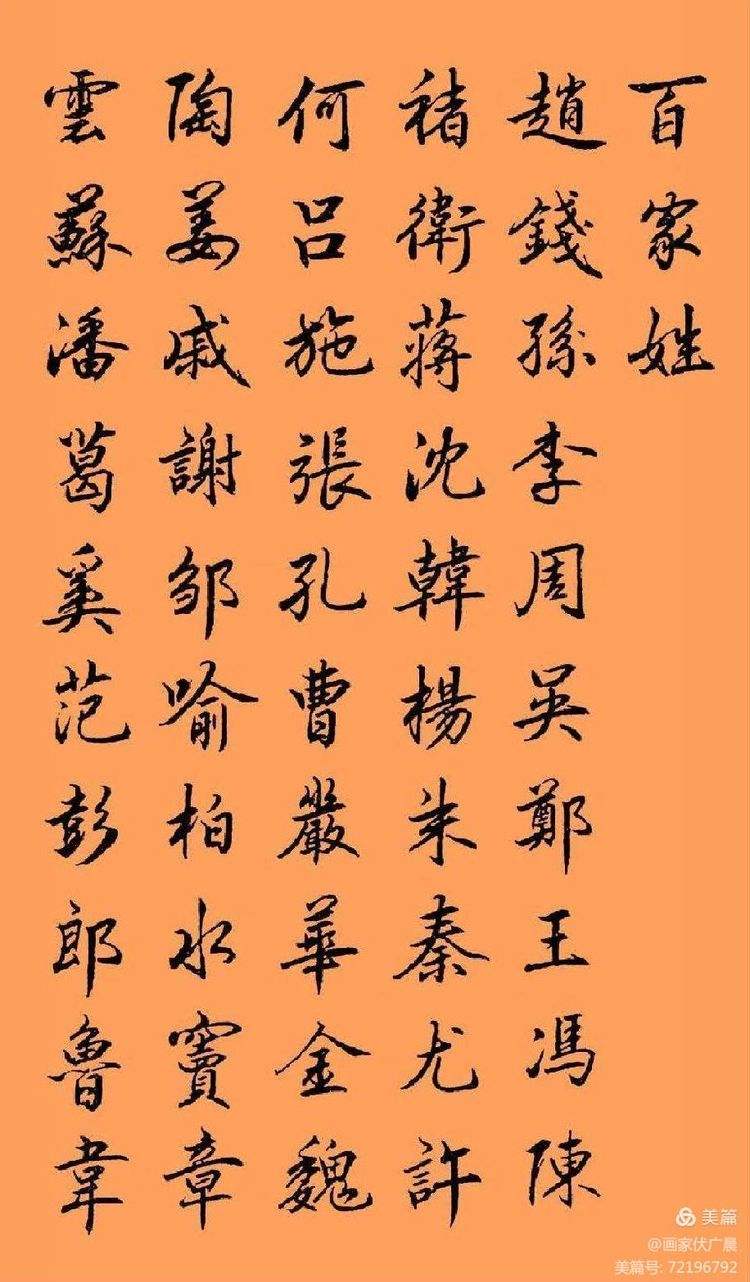 百家姓
趙錢孫李周吴鄭王馮陳
褚衛蔣沈韓楊朱秦尤許
何呂施張孔曹嚴華金魏
陶姜戚謝邹喻柏水竇章
雲蘇潘葛奚范彭郎魯韋
美篇
@画家伏广晨
美篇号: 72196792